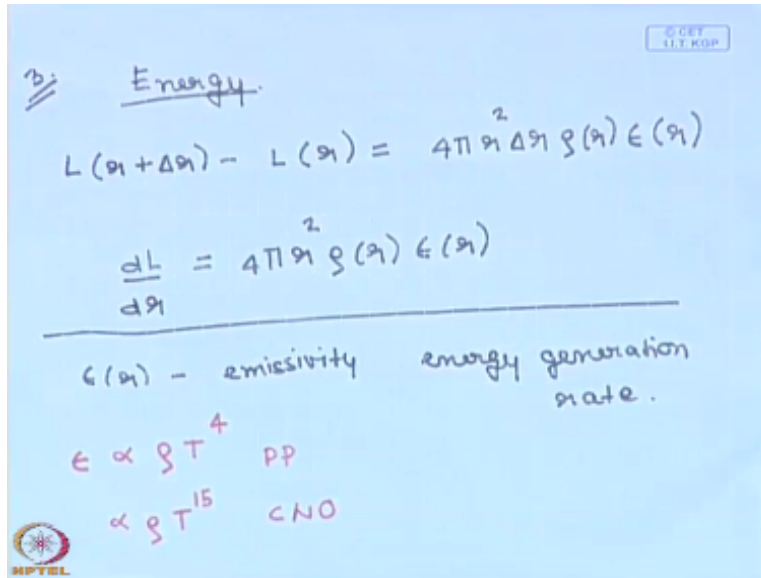 © CET
I.I.T. KGP
3. Energy.
L(r+Δr) - L(r) = 4πr²Δr ρ(r) ϵ(r)
dL/dr = 4πr² ρ(r) ϵ(r)
ϵ(r) - emissivity energy generation rate.
ϵ ∝ ρT⁴ PP
∝ ρT¹⁵ CNO
NPTEL